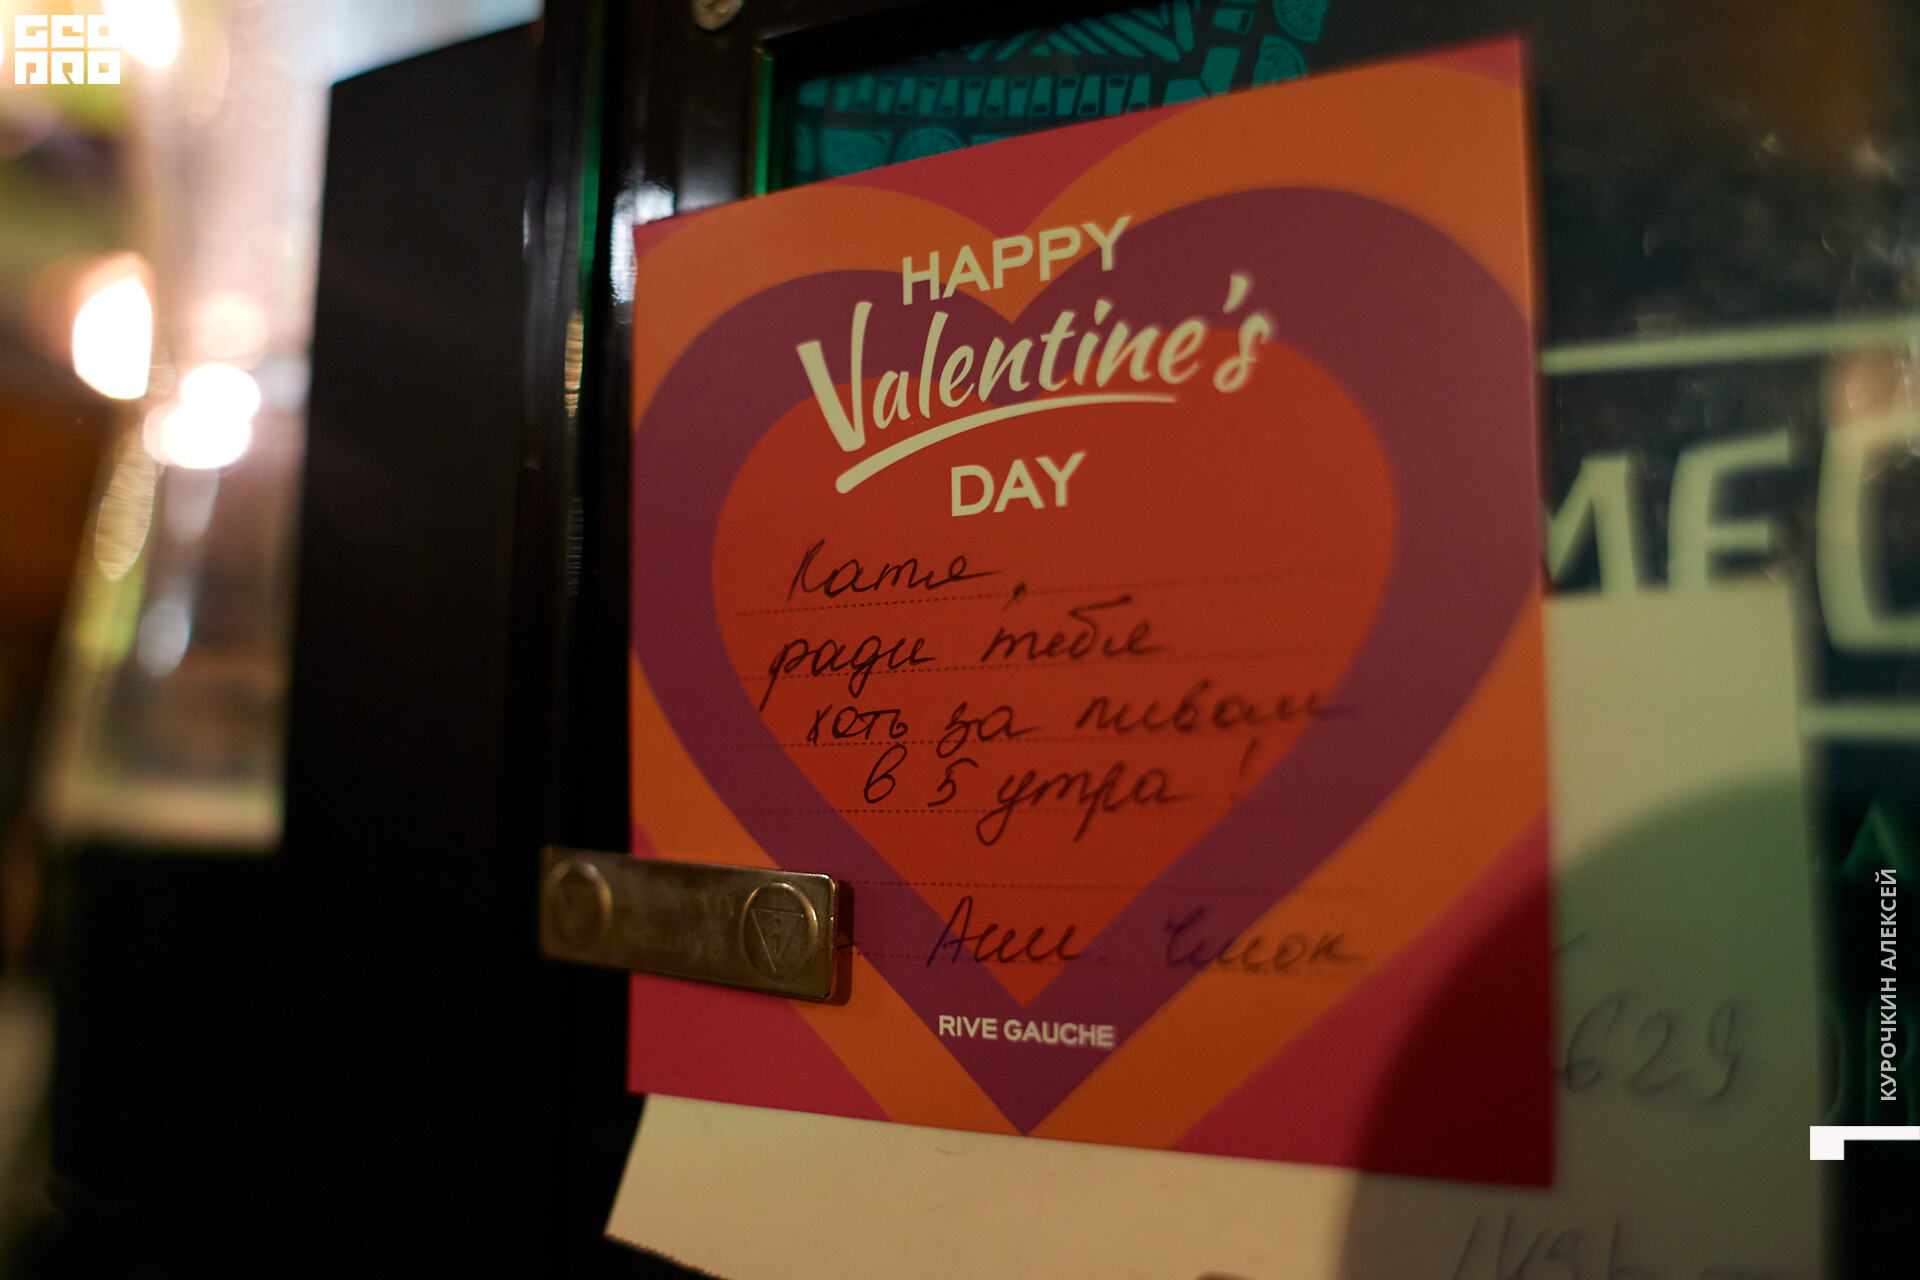 GEO
PRO
HAPPY
Valentine's
DAY
Катя,
ради тебя
хоть за пивом
в 5 утра!
RIVE GAUCHE
629
КУРОЧКИН АЛЕКСЕЙ